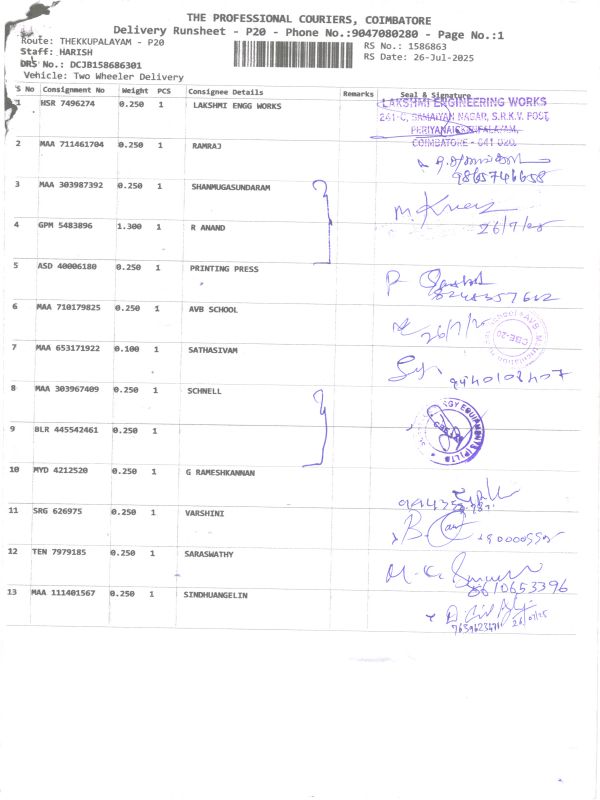 THE PROFESSIONAL COURIERS, COIMBATORE
Delivery Runsheet - P20 - Phone No.:9047080280 - Page No.:1
Route: THEKKUPALAYAM - P20
RS No.: 1586863
Staff: HARISH
RS Date: 26-Jul-2025
DRS No.: DCJB158686301
Vehicle: Two Wheeler Delivery
S No Consignment No Weight PCS Consignee Details Remarks Seal & Signature
1 HSR 7496274 0.250 1 LAKSHMI ENGG WORKS
LAKSHMI ENGINEERING WORKS
COIMBATORE - 641 020.
2 MAA 711461704 0.250 1 RAMRAJ
9865746658
3 MAA 303987392 0.250 1 SHANMUGASUNDARAM
4 GPM 5483896 1.300 1 R ANAND
26/7/25
5 ASD 40006180 0.250 1 PRINTING PRESS
6 MAA 710179825 0.250 1 AVB SCHOOL
26/7/25
7 MAA 653171922 0.100 1 SATHASIVAM
8 MAA 303967409 0.250 1 SCHNELL
9 BLR 445542461 0.250 1
10 MYD 4212520 0.250 1 G RAMESHKANNAN
11 SRG 626975 0.250 1 VARSHINI
12 TEN 7979185 0.250 1 SARASWATHY
8610653396
13 MAA 111401567 0.250 1 SINDHUANGELIN
26/07/25